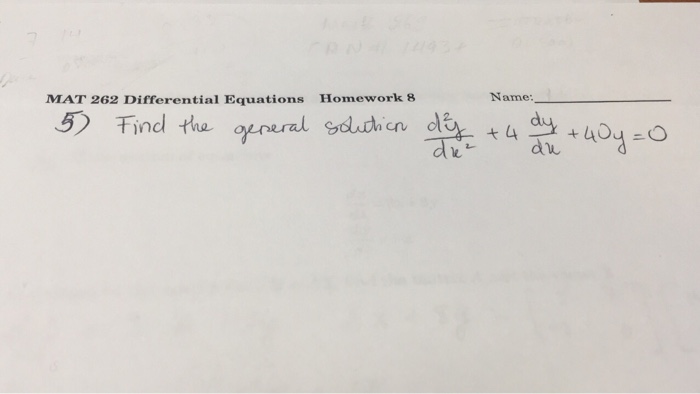 MAT 262 Differential Equations Homework 8 Name:
5) Find the general solution d²y/dx² + 4 dy/dx + 40y = 0